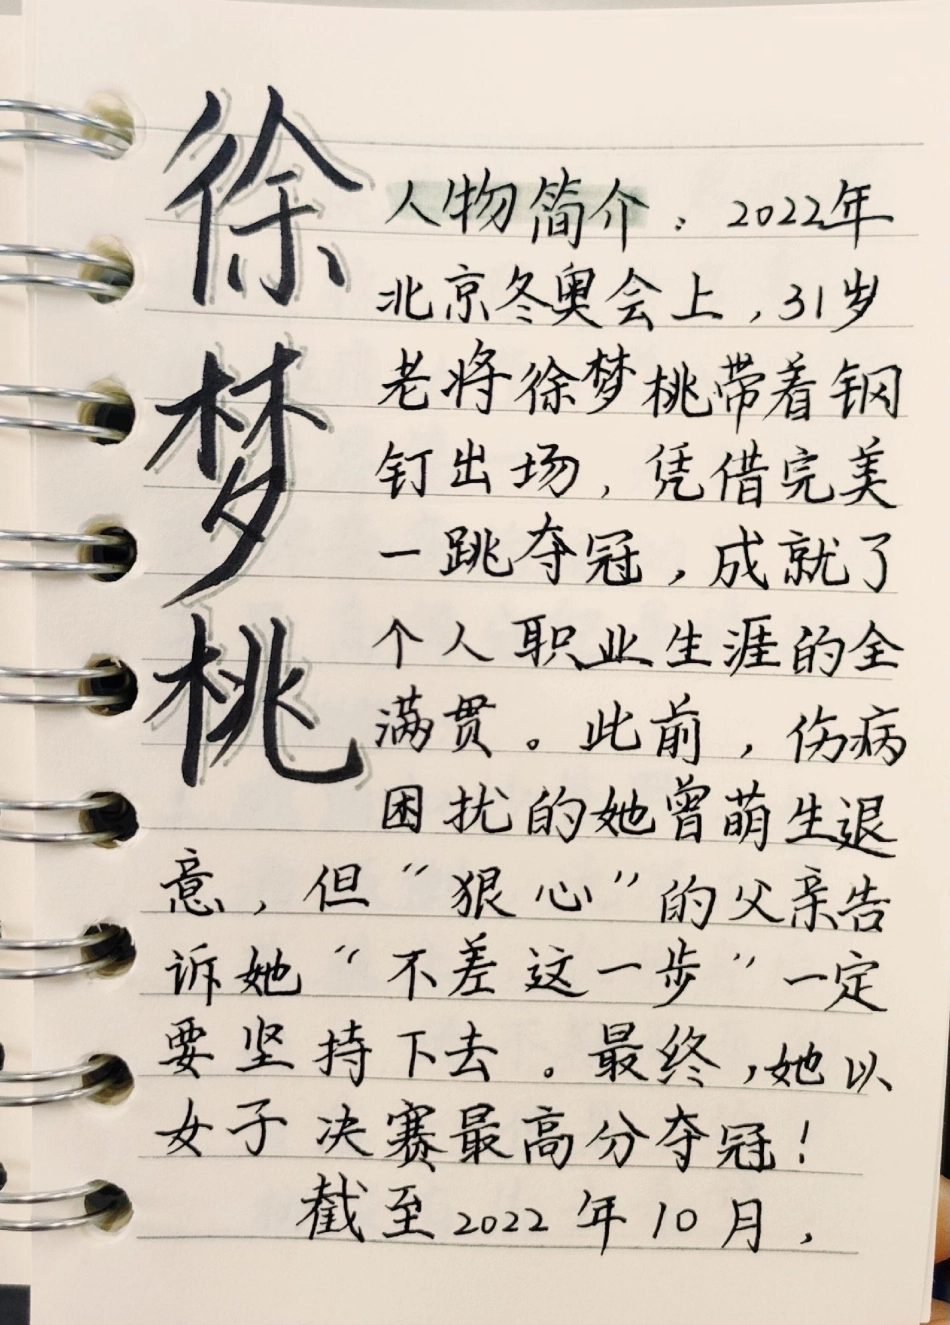 徐梦桃
人物简介：2022年
北京冬奥会上，31岁
老将徐梦桃带着钢
钉出场，凭借完美
一跳夺冠，成就了
个人职业生涯的全
满贯。此前，伤病
困扰的她曾萌生退
意，但“狠心”的父亲告
诉她“不差这一步”一定
要坚持下去。最终，她以
女子决赛最高分夺冠！
截至2022年10月，